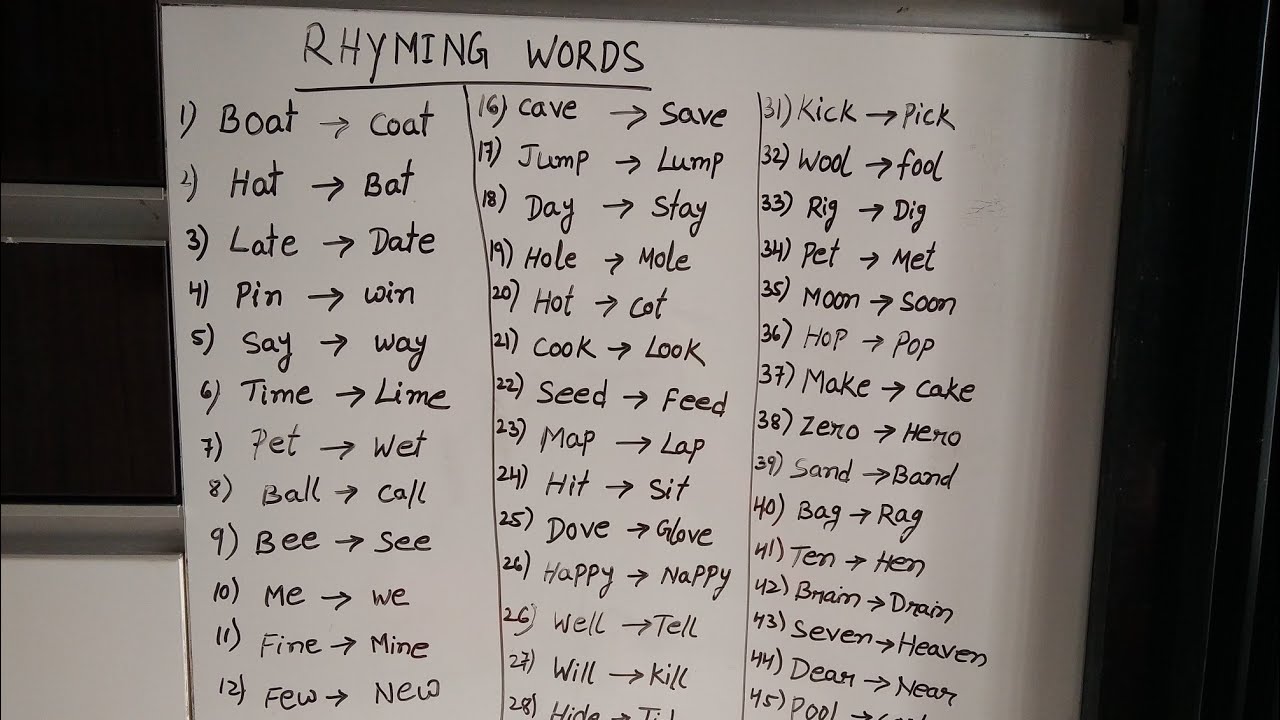 RHYMING WORDS
1) Boat → Coat
2) Hat → Bat
3) Late → Date
4) Pin → Win
5) Say → Way
6) Time → Lime
7) Pet → Wet
8) Ball → Call
9) Bee → See
10) Me → We
11) Fine → Mine
12) Few → New
16) Cave → Save
17) Jump → Lump
18) Day → Stay
19) Hole → Mole
20) Hot → Cot
21) Cook → Look
22) Seed → Feed
23) Map → Lap
24) Hit → Sit
25) Dove → Glove
26) Happy → Nappy
26) Well → Tell
27) Will → Kill
28) Hide →
31) Kick → Pick
32) Wool → fool
33) Rig → Dig
34) Pet → Met
35) Moon → Soon
36) Hop → Pop
37) Make → Cake
38) Zero → Hero
39) Sand → Band
40) Bag → Rag
41) Ten → Hen
42) Brain → Drain
43) Seven → Heaven
44) Dear → Near
45) Pool →